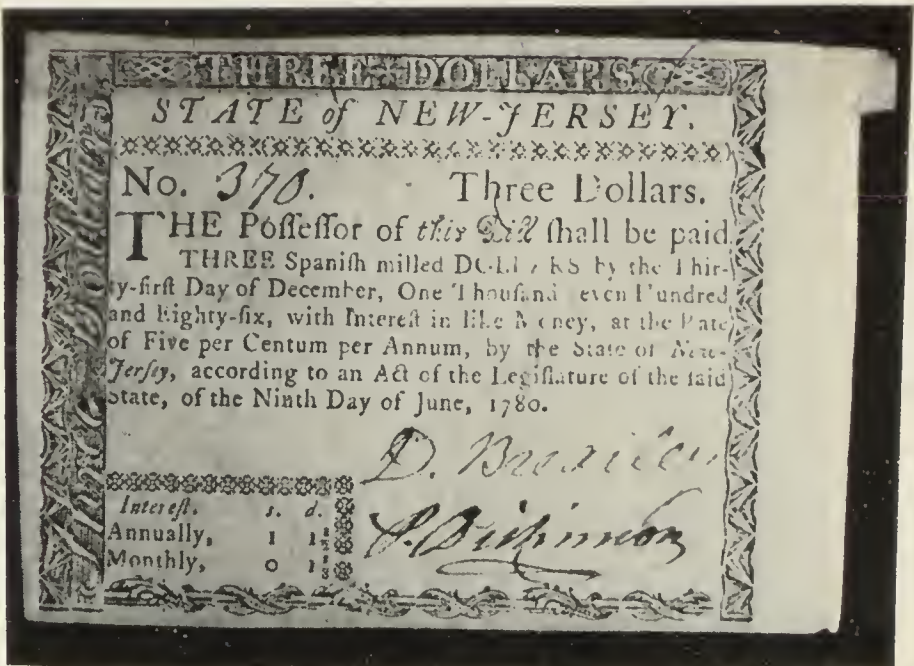 THREE DOLLARS
STATE of NEW-JERSEY.
No. 370. Three Dollars.
THE Poſſeſſor of this Bill ſhall be paid
THREE Spaniſh milled DOLLARS by the Thir-
ty-firſt Day of December, One Thouſand ſeven Hundred
and Eighty-ſix, with Intereſt in like Money, at the Rate
of Five per Centum per Annum, by the State of New-
Jerſey, according to an Act of the Legiſlature of the ſaid
State, of the Ninth Day of June, 1780.
D. Brearley
P. Dickinson
Intereſt. s. d.
Annually, 1
Monthly, 0
Three Dollars